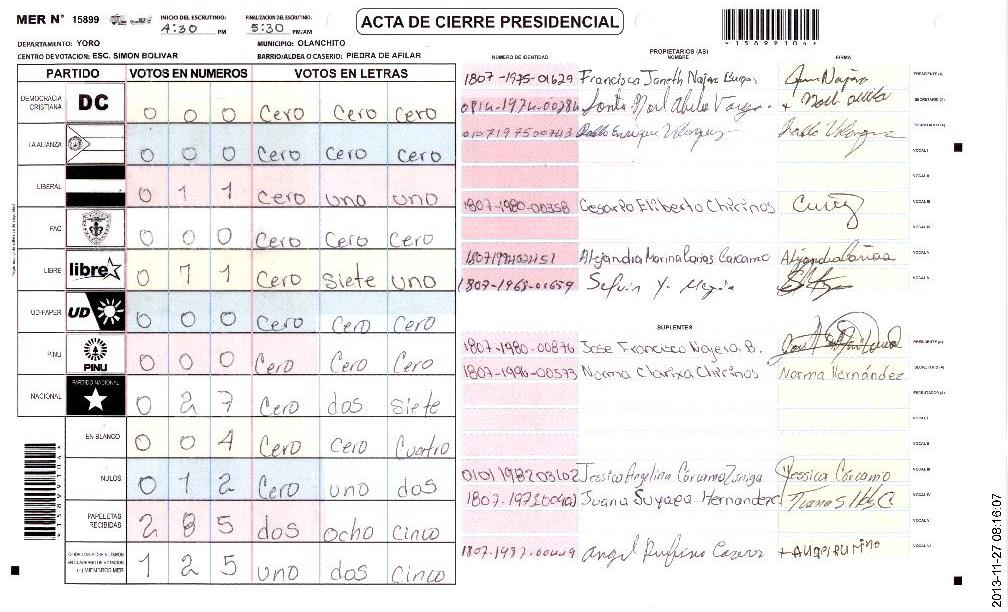 MER N° 15899
INICIO DEL ESCRUTINIO: 4:30 PM
FINALIZACION DEL ESCRUTINIO: 5:30 PM/AM
ACTA DE CIERRE PRESIDENCIAL
*15899104*
DEPARTAMENTO: YORO
MUNICIPIO: OLANCHITO
CENTRO DE VOTACION: ESC. SIMON BOLIVAR
BARRIO/ALDEA O CASERIO: PIEDRA DE AFILAR
PARTIDO VOTOS EN NUMEROS VOTOS EN LETRAS
DEMOCRACIA CRISTIANA DC 0 0 0 Cero Cero Cero
LA ALIANZA 0 0 0 Cero Cero Cero
LIBERAL 0 1 1 Cero uno uno
PAC 0 0 0 Cero Cero Cero
LIBRE libre 0 7 1 Cero Siete uno
UD-FAPER UD 0 0 0 Cero Cero Cero
PINU PINU 0 0 0 Cero Cero Cero
NACIONAL PARTIDO NACIONAL 0 2 7 Cero dos siete
EN BLANCO 0 0 4 Cero cero Cuatro
NULOS 0 1 2 Cero uno dos
PAPELETAS RECIBIDAS 2 8 5 dos ocho Cinco
CIUDADANOS QUE VOTARON EN CUADERNO DE VOTACION (+) MIEMBROS MER 1 2 5 uno dos Cinco
PROPIETARIOS (AS)
NUMERO DE IDENTIDAD NOMBRE FIRMA
1807-1975-01629 Francisca Janeth Najera Burgos PRESIDENTE(A)
SECRETARIO (A)
Pablo Enrique Velasquez
VOCAL I
VOCAL II
1807-1980-00358 Cesario Eliberto Chirinos VOCAL III
VOCAL IV
Alejandra Marina Carias Carcamo Alejandra Carias VOCAL V
1807-1968-01659
SUPLENTES
1807-1980-00876 Jose Francisco Najera B. PRESIDENTE (A)
Norma Clarixa Chirinos Norma Hernández SECRETARIO (A)
ESCRUTADOR (A)
VOCAL I
VOCAL II
Jessica Angelina Carcamo Zuniga Jessica Carcamo VOCAL III
Juana Suyapa Hernandez VOCAL IV
VOCAL V
Angel Rufino VOCAL VI
2013-11-27 08:16:07